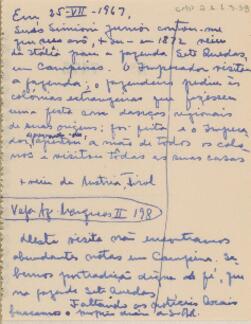 CMP 2.1.4.3.98
Em, 25-VII-1967,
Lindo Simioni Junior contou-me
que seu avô, + Eu - em 1877 veiu
de Itália para a fazenda Sete Quedas,
em Campinas. O Imperador visitou
a fazenda; o fazendeiro pediu às
colônias estrangeiras que fizessem
uma festa com danças regionais
de suas origens; foi feita e o Impera-
dor, apertou a mão de todos os colo-
nos e visitou todas as suas casas
+ veiu da Austria Tirol
Veja Az. Marques II 198
Desta visita não encontramos
abundantes notas em Campinas. Se
bemos por tradição digna de fé, que
na fazenda Sete Quedas.
Faltando os notícias locais
buscamos o